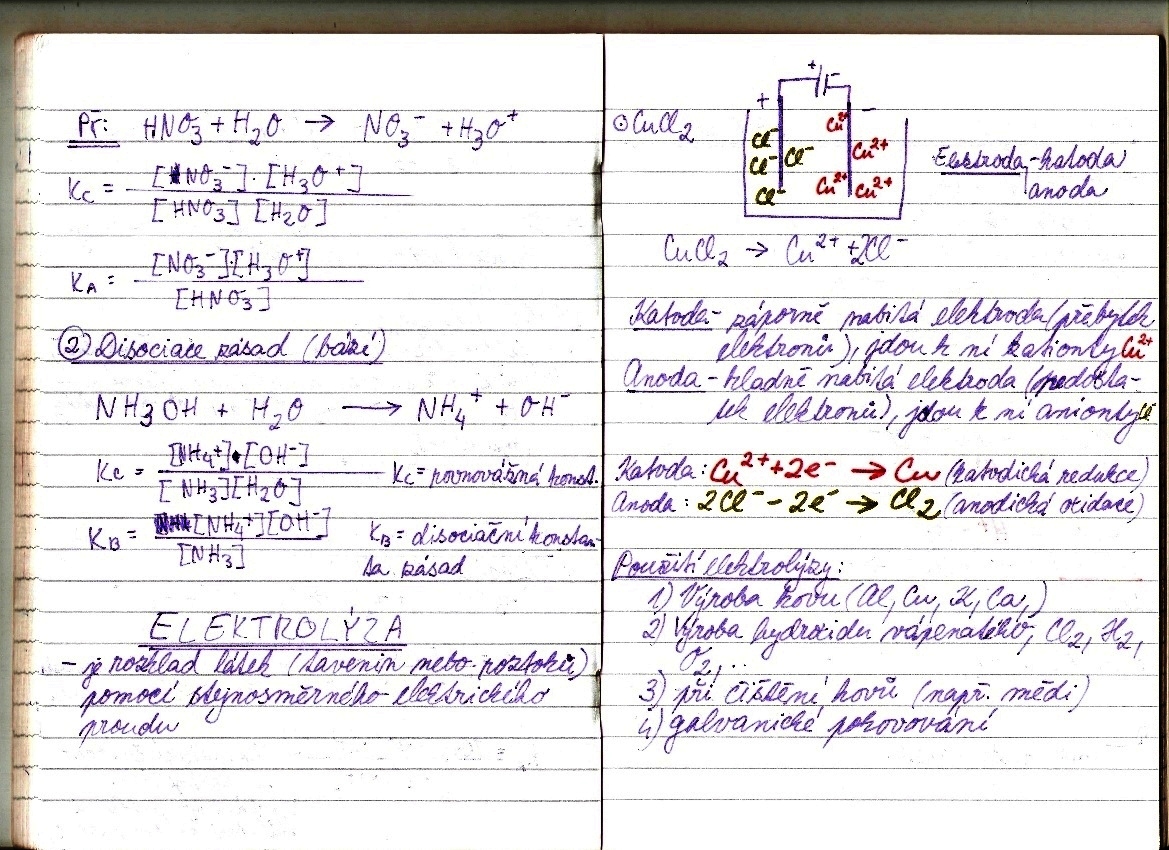 Př: HNO3 + H2O → NO3⁻ + H3O⁺
KC = [NO3⁻]·[H3O⁺] / [HNO3] [H2O]
KA = [NO3⁻]·[H3O⁺] / [HNO3]
② Disociace zásad (bází)
NH3OH + H2O → NH4⁺ + OH⁻
KC = [NH4⁺]·[OH⁻] / [NH3][H2O] KC = rovnovážná konst.
KB = [NH4⁺][OH⁻] / [NH3] KB = disociační konstan-
ta zásad
ELEKTROLÝZA
- je rozklad látek (tavenin nebo roztoků)
pomocí stejnosměrného elektrického
proudu
⊙ CuCl2
+
+ −
Cl⁻ Cu²⁺
Cl⁻ Cl⁻ Cu²⁺
Cl⁻ Cu²⁺ Cu²⁺
Elektroda - katoda
anoda
CuCl2 → Cu²⁺ + 2Cl⁻
Katoda - záporně nabitá elektroda (přebytek
elektronů), jdou k ní kationty Cu²⁺
Anoda - kladně nabitá elektroda (nedosta-
tek elektronů), jdou k ní anionty Cl⁻
Katoda: Cu²⁺ + 2e⁻ → Cu (katodická redukce)
Anoda: 2Cl⁻ − 2e⁻ → Cl2 (anodická oxidace)
Použití elektrolýzy:
1) Výroba kovu (Al, Cu, K, Ca,)
2) Výroba hydroxidu vápenatého, Cl2, H2,
O2, ...
3) při čištění kovů (např. mědi)
4) galvanické pokovování